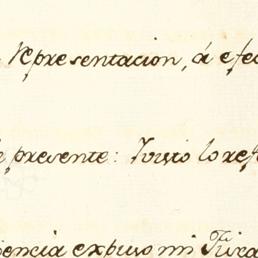 representacion, á efec
presente: Visto lo ref
iencia expuso mi Fisca